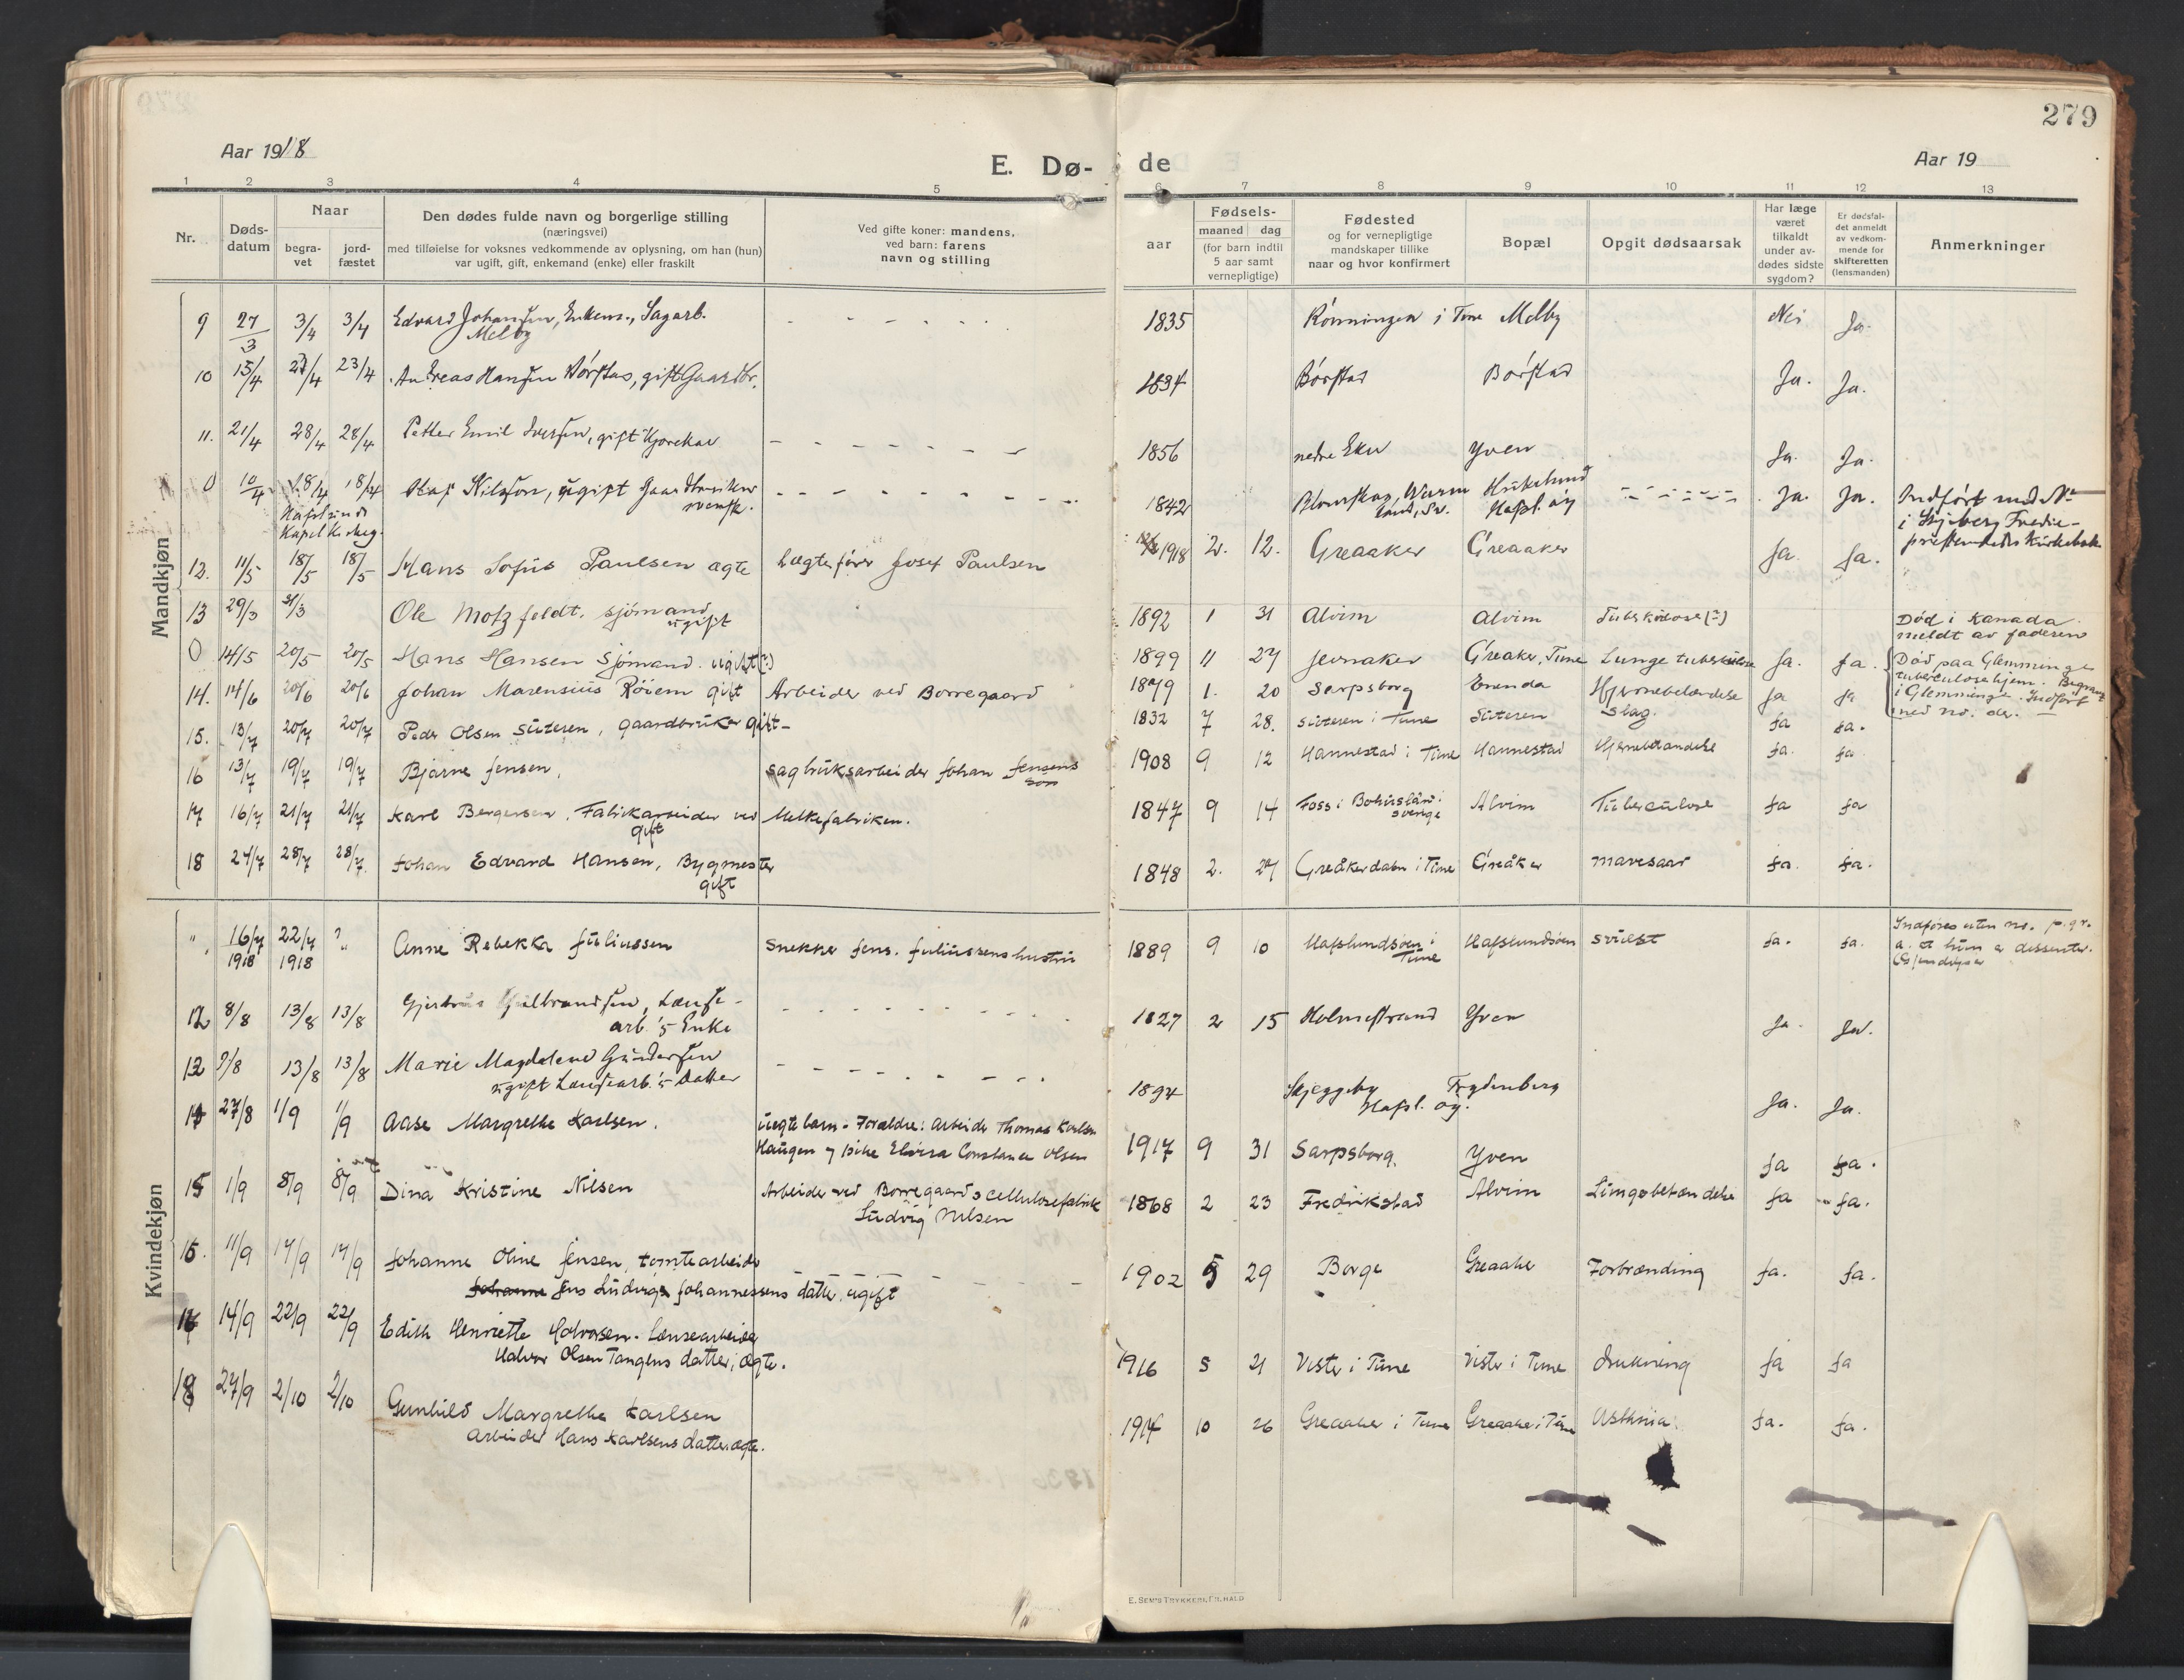 279
Aar 1918
E. Dø-
de
Aar 19
1 2 3 4 5 6 7 8 9 10 11 12 13
Nr.
Døds-
datum
Naar
begra-
vet
jord-
fæstet
Den dødes fulde navn og borgerlige stilling
(næringsvei)
med tilføielse for voksnes vedkommende av oplysning, om han (hun)
var ugift, gift, enkemand (enke) eller fraskilt
Ved gifte koner: mandens,
ved barn: farens
navn og stilling
aar
Fødsels-
maaned dag
(for barn indtil
5 aar samt
vernepligtige)
Fødested
og for vernepligtige
mandskaper tillike
naar og hvor konfirmert
Bopæl
Opgit dødsaarsak
Har læge
været
tilkaldt
under av-
dødes sidste
sygdom?
Er dødsfal-
det anmeldt
av vedkom-
mende for
skifteretten
(lensmanden)
Anmerkninger
Mandkjøn
9 27/3 3/4 3/4 Edvard Johansen, Enkem., Sagarb. - - - - - - 1835 Rønningen i Tune Melby Nei Ja.
Melby
10 15/4 23/4 Andreas Hansen Børstad, gift Gaardbr. 1834 Børstad Børstad Ja. Ja.
11. 21/4 28/4 28/4 Petter Emil Iversen, gift - - - - - - 1856 nedre Eker Yven Ja. Ja.
0 10/4 18/4 18/4 Nilsson, ugift Gaardbruker - - - - - - - 1842 - - - - - - Ja. Ja. Indført med No
svensk. land, Sv. Hafsl. og i Skjeberg
Hafslund
Kapel Kirkeg.
12. 11/5 18/5 18/5 Hans Sofus Paulsen ægte Lægtefører Josef Paulsen 1918 2. 12. Greaaker Greaaker Ja. Ja.
13 29/3 31/3 Ole Motzfeldt. sjømand 1892 1 31 Alvim Alvim Tuberkulose (?) Død i Kanada
ugift meldt av faderen
0 14/5 20/5 20/5 Hans Hansen sjømand. ugift (?) 1899 11 27 Jevnaker Greaker, Tune Lunge tuberkulose Ja. Ja. Død paa Glemminge
tuberculosehjem. Begravet
i Glemminge. Indført
med no. der.
14. 14/6 20/6 20/6 Johan Marensius Røiem gift Arbeider ved Borregaard 1879 1. 20 Sarpsborg Enenda Hjernebetændelse Ja Ja
15. 13/7 20/7 20/7 Peder Olsen Suteren, gaardbruker gift - 1832 7 28. Suteren i Tune Suteren Slag. Ja Ja.
16 13/7 19/7 19/7 Bjarne Jensen. Sagbruksarbeider Johan Jensens 1908 9 12 Hannestad i Tune Hannestad Hjernebetændelse Ja. Ja
søn
17 16/7 21/7 21/7 Karl Bergersen. Fabrikarbeider ved Melkefabriken. 1847 9 14 Foss i Bohuslän i Alvim Tuberculose Ja Ja
gift Sverige
18 24/7 28/7 28/7. Johan Edvard Hansen, Bygmester 1848 2. 27 Greåkerdalen i Tune Greåker mavesaar Ja. Ja.
gift
Kvindekjøn
" 16/7 22/7 ? Anne Rebekka Juliussen Snekker Jens. Juliussens hustru 1889 9 10 Hafslundsøen i Hafslundsøen svulst Ja. Ja. Indføres uten no. p.gr.
1918 1918 Tune a. at hun er dissenter.
12 8/8 13/8 13/8 Gjertrud Gulbrandsen, Lænse- - - - - - - 1827 2 15 Holmestrand Yven Ja. Ja.
arb.'s Enke
13 9/8 13/8 13/8 Marie Magdalene Gundersen - - - - - - - 1894 Skjeggeby Frydenberg Ja. Ja.
ugift Lænsearb.'s Datter Hafsl. og.
14 27/8 1/9 1/9 Aase Margrethe Karlsen. uegte barn - Forældre: Arbeider Thomas Karlsen 1917 9 31 Sarpsborg. Yven Ja Ja.
Haugen og pike Elvira Constance Olsen
15 1/9 8/9 8/9 Dina Kristine Nilsen Arbeider ved Borregaards cellulosefabrik 1868 2 23 Fredrikstad Alvim Lungebetændelse Ja Ja.
Ludvig Nilsen
16. 11/9 17/9 17/9 Johanne Oline Jensen, tomtearbeider - - - - - 1902 5 29 Borge Greaaker Forbrænding Ja. Ja.
Johanne Jens Ludvigs Johannessens datter, ugift
14/9 22/9 22/9 Edith Henriette Halvorsen. Lænsearbeider 1916 5 21 Vister i Tune Vister i Tune drukning Ja Ja
Halvor Olsen Tangens datter, ægte.
18 27/9 2/10 2/10 Gunhild Margrethe Karlsen 1914 10 26 Greaaker i Tune Greaaker i Tune Asthma Ja. Ja.
Arbeider Hans Karlsens datter, ægte.
E. SEM'S TRYKKERI, FR. HALD